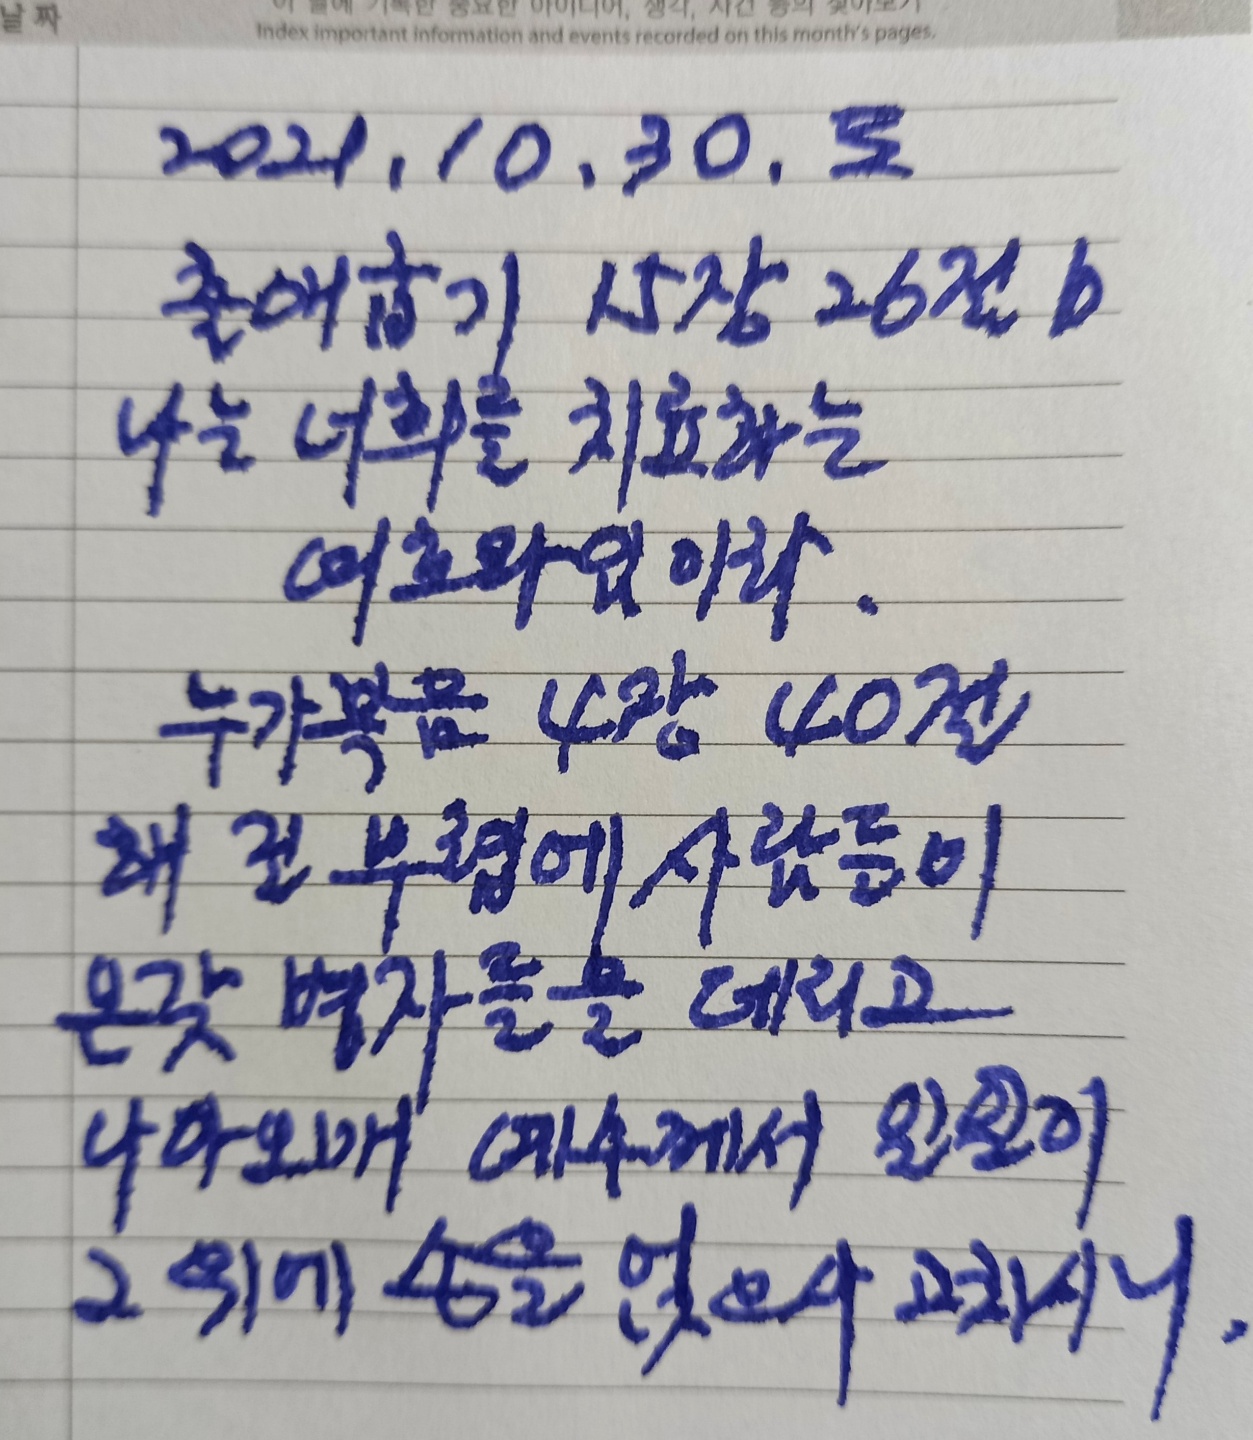 날짜
이 달에 기록한 중요한 아이디어, 생각, 사건 등의 찾아보기
Index important information and events recorded on this month's pages.
2021.10.30.토
출애굽기 15장 26절 b
나는 너희를 치료하는
여호와임이라.
누가복음 4장 40절
해 질 무렵에 사람들이
온갖 병자들을 데리고
나아오매 예수께서 일일이
그 위에 손을 얹으사 고치시니.